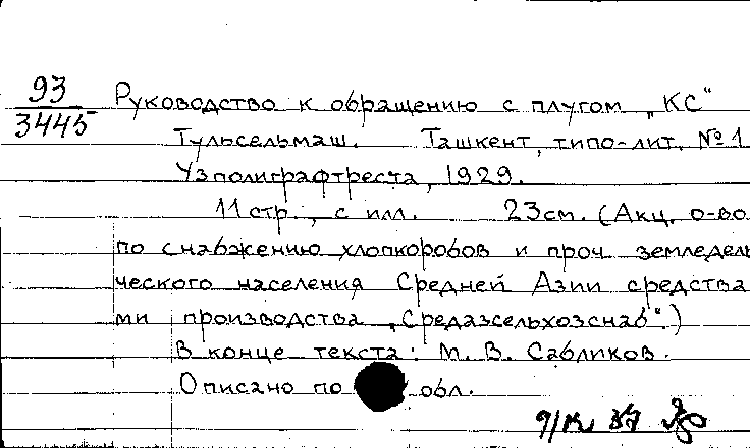 93
3445
Руководство к обращению с плугом „КС“
Тульсельмаш. Ташкент, типо-лит. №1
Узполиграфтреста, 1929.
11 стр., с илл. 23см. (Акц. о-во
по снабжению хлопкоробов и проч. земледель
ческого населения Средней Азии средства
ми производства „Средазсельхозснаб“.)
В конце текста: М. В. Сабликов.
Описано по обл.